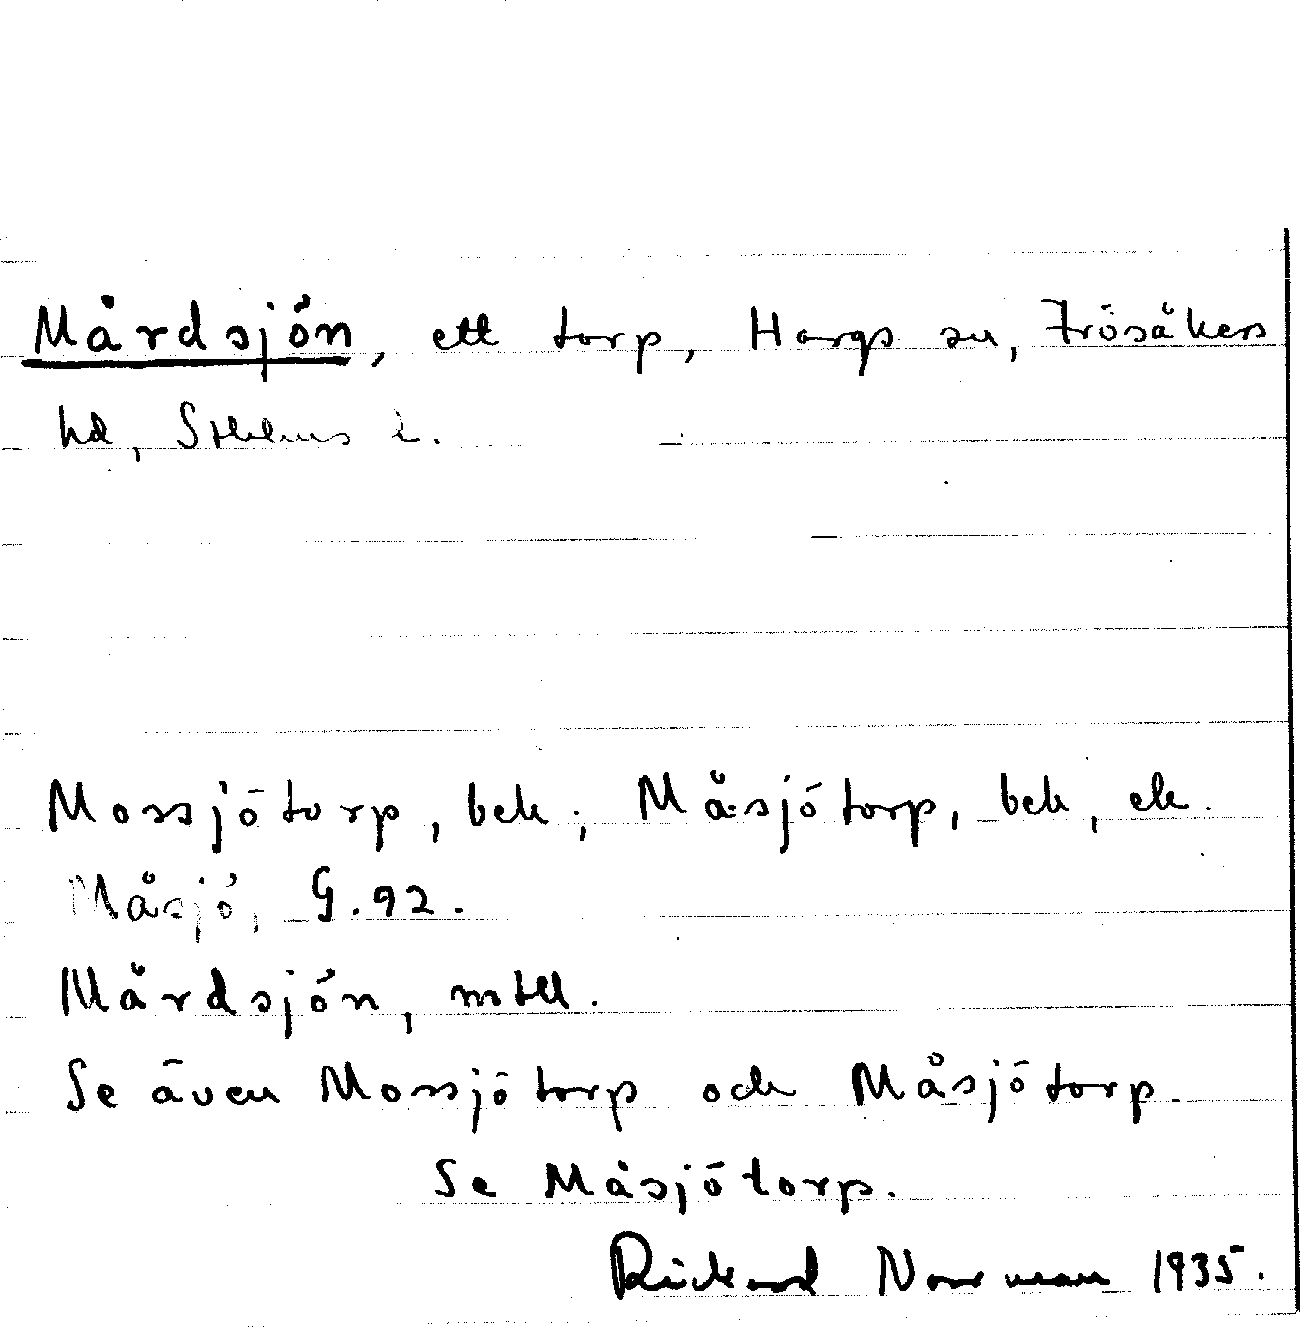 Mårdsjön, ett torp, Hargs sn, Frösåkers
hd, Sthlms l.
Mossjötorp, bek; Måsjötorp, bek, ek.
Måsjö, G. 92.
Mårdsjön, mtll.
Se även Mossjötorp och Måsjötorp.
Se Måsjötorp.
Rickard Norrman 1935.